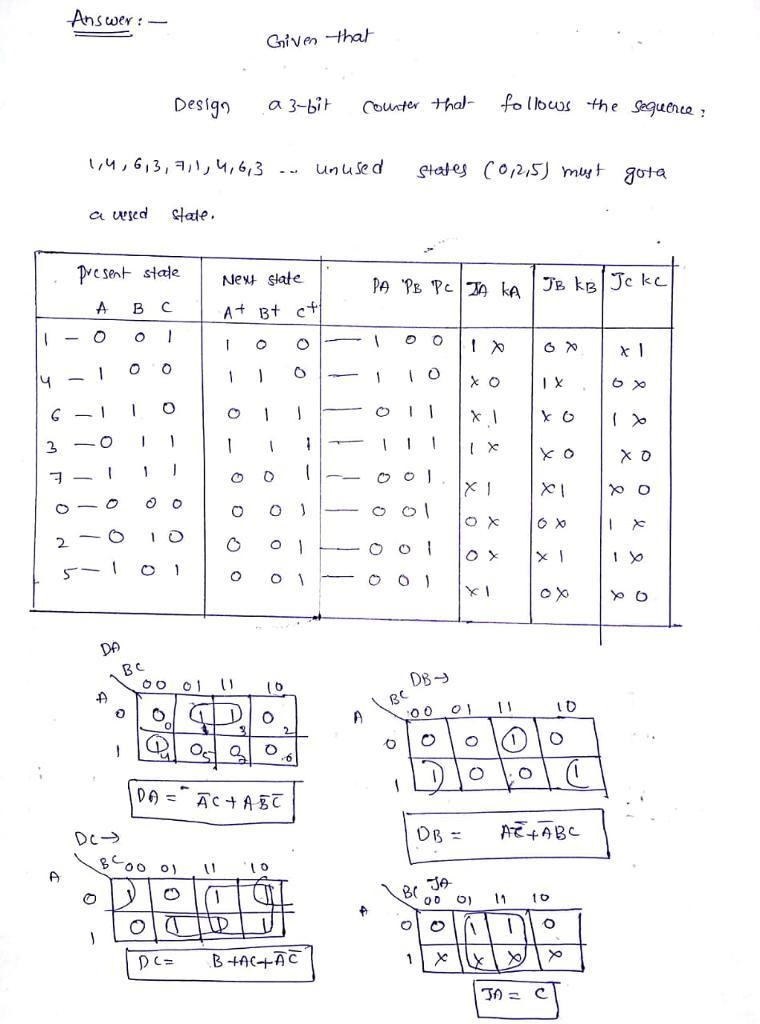 Answer : —
Given that
Design a 3-bit counter that follows the sequence:
1,4,6,3,7,1,4,6,3 -- unused states (0,2,5) must gota
a used state.
Present state Next state DA DB DC JA KA JB KB JC KC
A B C A+ B+ C+
1 - 0 0 1 1 0 0 — 1 0 0 1 X 0 X X 1
4 - 1 0 0 1 1 0 — 1 1 0 X 0 1 X 0 X
6 - 1 1 0 0 1 1 — 0 1 1 X 1 X 0 1 X
3 - 0 1 1 1 1 1 — 1 1 1 1 X X 0 X 0
7 - 1 1 1 0 0 1 — 0 0 1 X 1 X 1 X 0
0 - 0 0 0 0 0 1 — 0 0 1 0 X 0 X 1 X
2 - 0 1 0 0 0 1 — 0 0 1 0 X X 1 1 X
5 - 1 0 1 0 0 1 — 0 0 1 X 1 0 X X 0
DA
BC
00 01 11 10
A
0 0 0 1 1 1 3 0 2
1 1 4 0 5 0 7 0 6
DA = A̅C + AB̅C̅
DB →
BC
A 00 01 11 10
0 0 0 1 0
1 1 0 0 1
DB = AC̅ + A̅BC
DC →
BC 00 01 11 10
A
0 1 0 1 1
1 0 1 1 1
DC = B + AC + A̅C̅
JA
BC 00 01 11 10
A
0 0 1 1 0
1 X X X X
JA = C